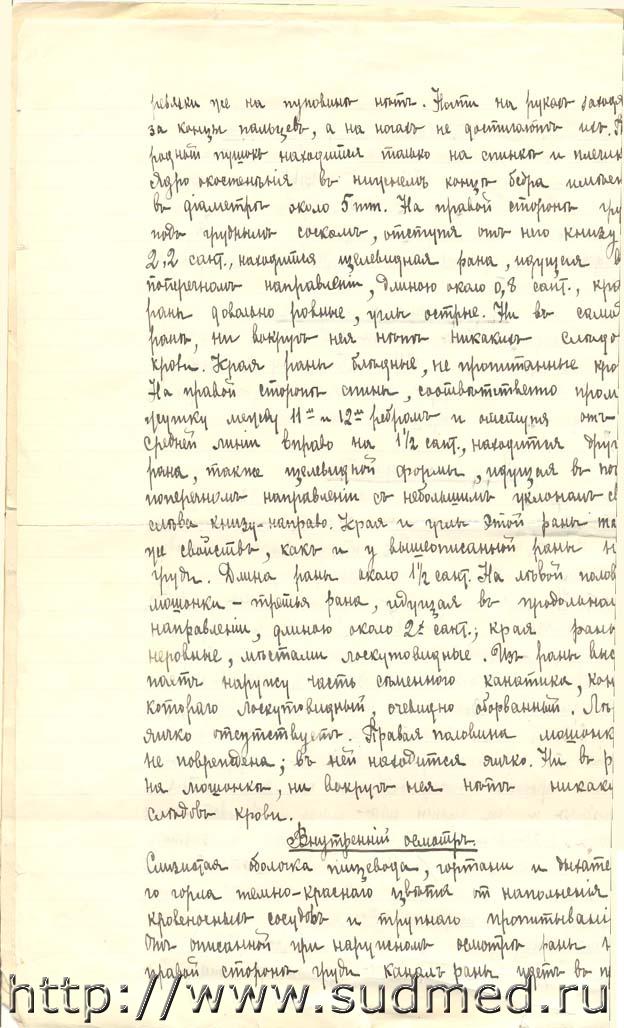 ревязки же на пуповинѣ нѣтъ. Ногти на рукахъ заходя
за концы пальцевъ, а на ногахъ не достигаютъ ихъ. П
родной пушокъ находится только на спинкѣ и плечик
Ядро окостенѣнія въ нижнемъ концѣ бедра имѣет
въ діаметрѣ около 5 mm. На правой сторонѣ гру
подъ груднымъ соскомъ, отступя отъ него книзу
2,2 сант., находится щелевидная рана, идущая
поперечномъ направленіи, длиною около 0,8 сант., кра
раны довольно ровные, углы острые. Ни въ самой
ранѣ, ни вокругъ нея нѣтъ никакихъ слѣдо
крови. Края раны блѣдные, не пропитанные кро
На правой сторонѣ спины, соотвѣтственно пром
жутку между 11ᵐ и 12ᵐ ребромъ и отступя отъ
средней линіи вправо на 1½ сант., находится друг
рана, также щелевидной формы, идущая въ
поперечномъ направленіи съ небольшимъ уклономъ
слѣва книзу-направо. Края и углы этой раны та
же свойствъ, какъ и у вышеописанной раны н
груди. Длина раны около 1½ сант. На лѣвой полов
мошонки – третья рана, идущая въ продольном
направленіи, длиною около 2 сант.; края раны
неровные, мѣстами лоскутовидные. Изъ раны выс
паетъ наружу часть сѣменного канатика, кон
котораго лоскутовидный, очевидно оборванный. Лѣ
яичко отсутствуетъ. Правая половина мошонк
не повреждена; въ ней находится яичко. Ни въ р
на мошонкѣ, ни вокругъ нея нѣтъ никак
слѣдовъ крови.
Внутренній осмотръ.
Слизистая оболочка пищевода, гортани и дыхате
го горла темно-краснаго цвѣта от наполнения
кровеносныхъ сосудовъ и трупнаго пропитывані
Отъ описанной при наружномъ осмотрѣ раны н
правой сторонѣ груди каналъ раны идетъ въ п
http://www.sudmed.ru